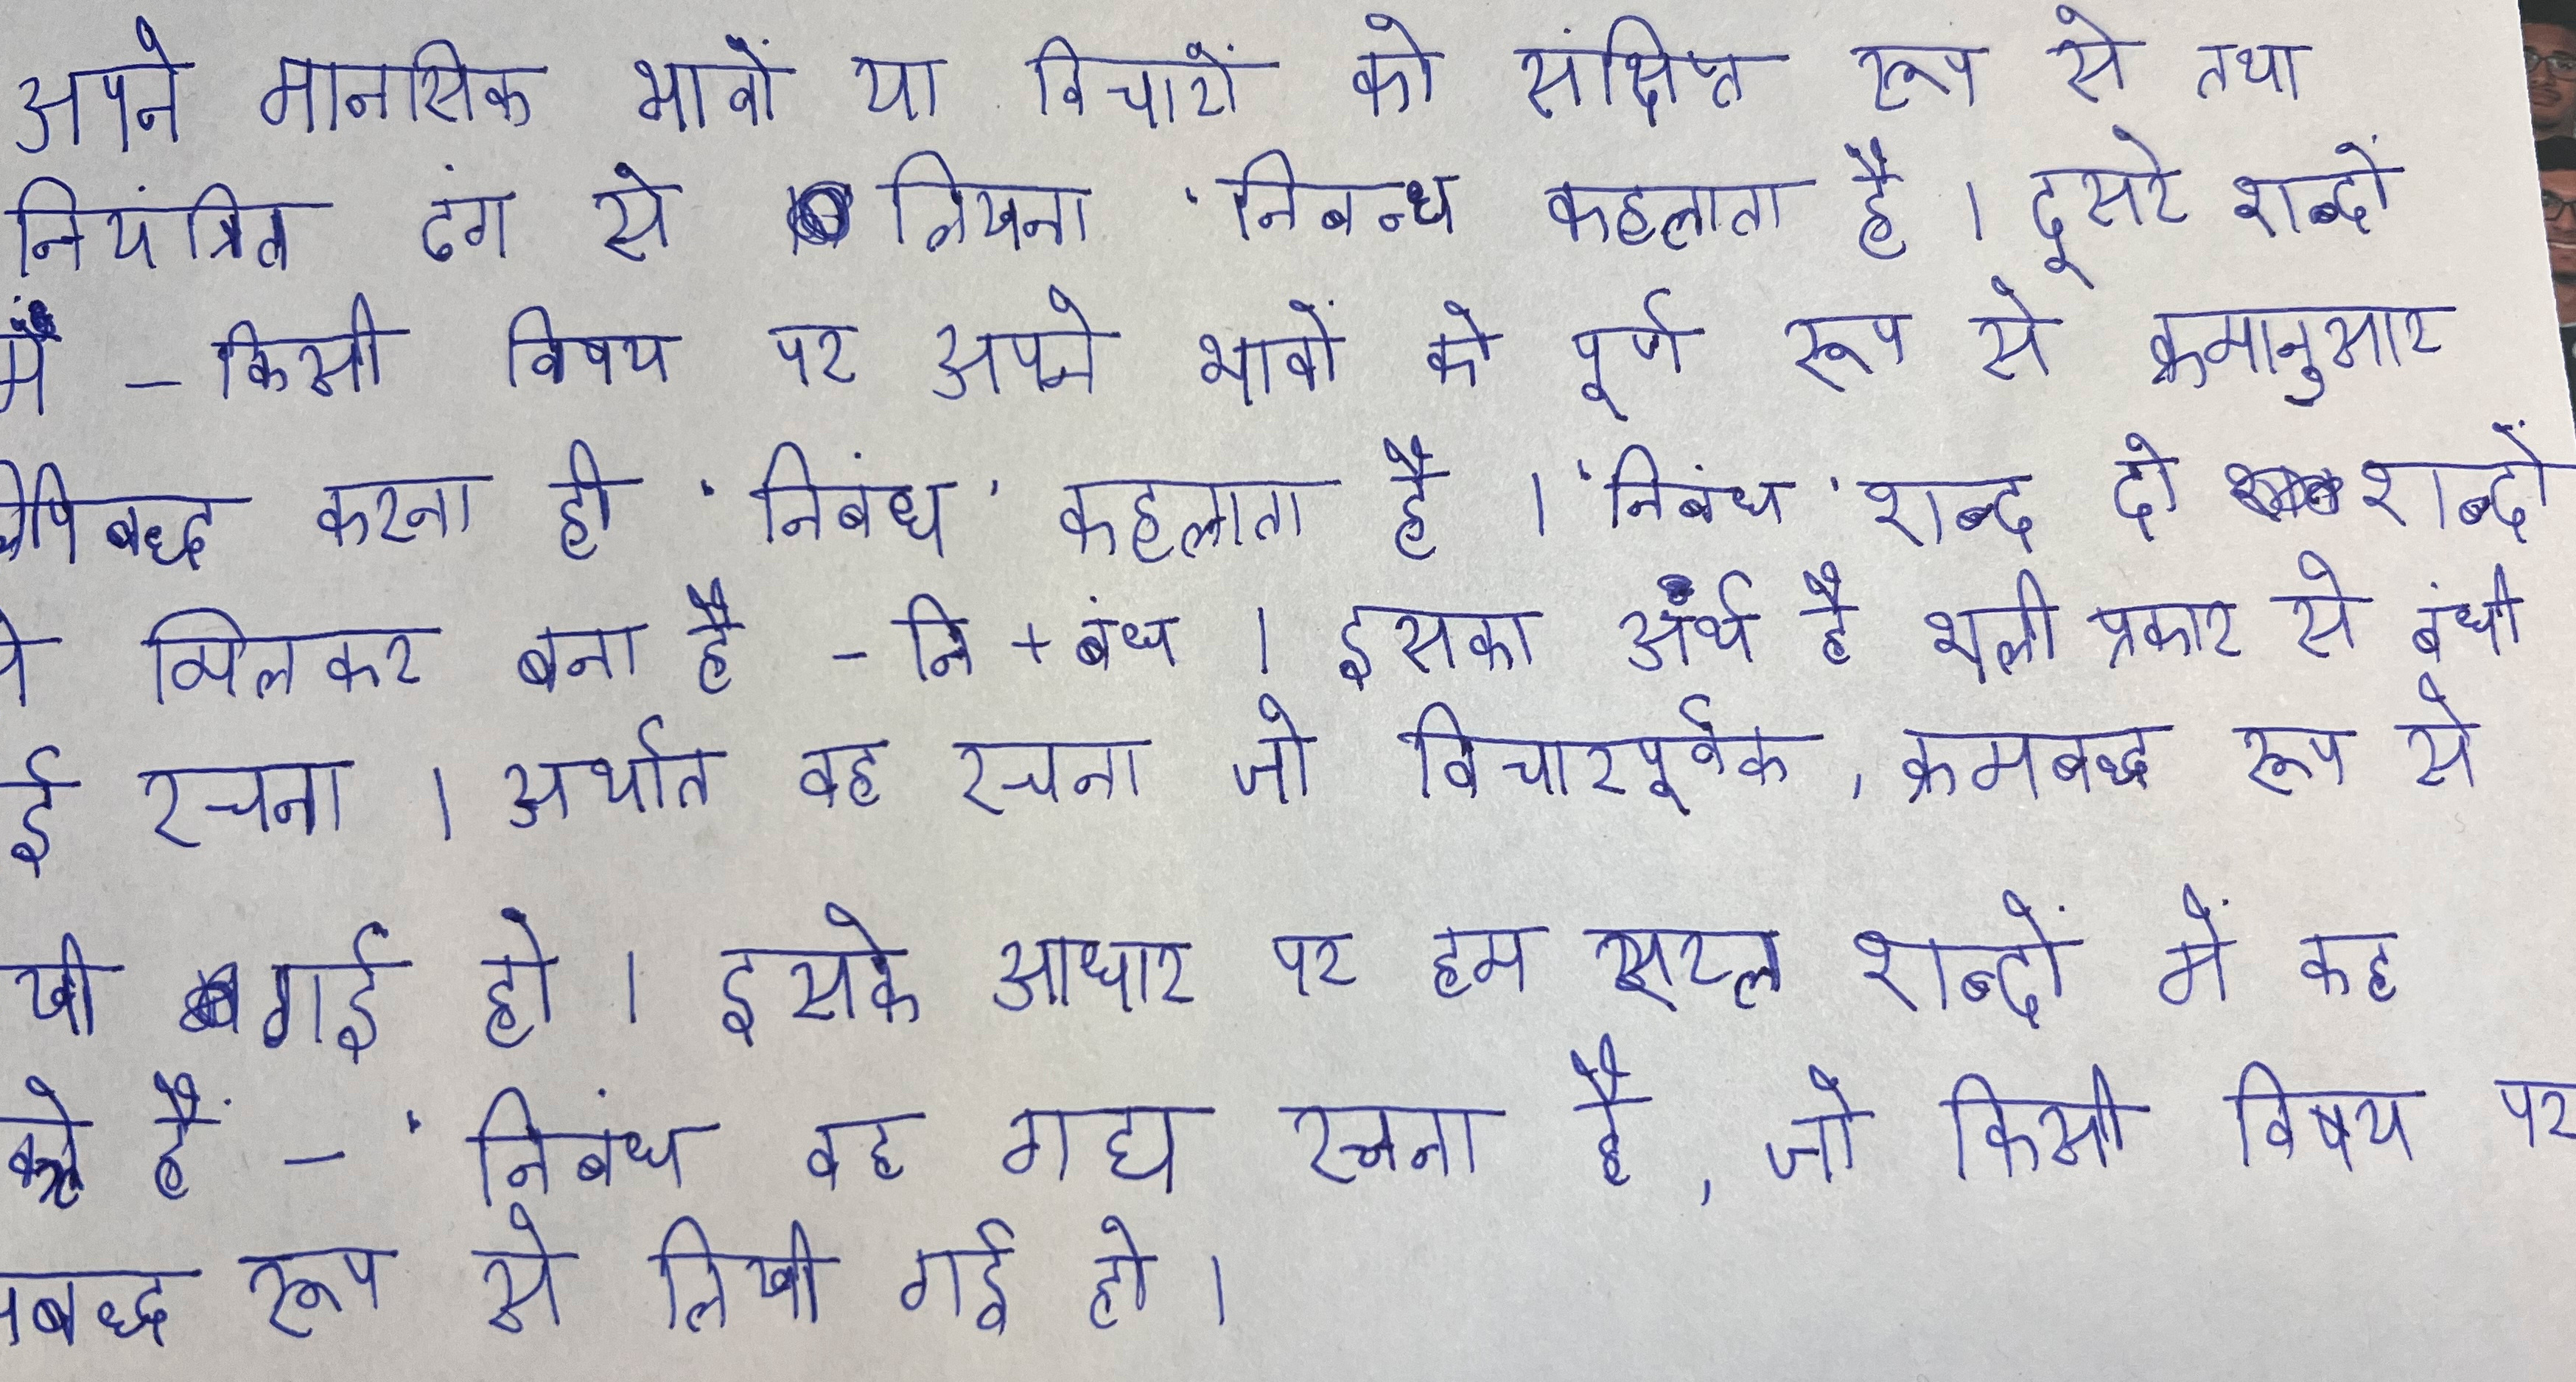 अपने मानसिक भावों या विचारों को संक्षिप्त रूप से तथा
नियंत्रित ढंग से लिखना 'निबन्ध कहलाता है । दूसरे शब्दों
में – किसी विषय पर अपने भावों को पूर्ण रूप से क्रमानुसार
पिबद्ध करना ही 'निबंध' कहलाता है । 'निबंध' शब्द दो शब्दों
मिलकर बना है – नि + बंध । इसका अर्थ है भली प्रकार से बंधी
ई रचना । अर्थात वह रचना जो विचारपूर्वक, क्रमबद्ध रूप से
खी गई हो । इसके आधार पर हम सरल शब्दों में कह
हैं – 'निबंध वह गद्य रचना है, जो किसी विषय पर
बद्ध रूप से लिखी गई हो ।